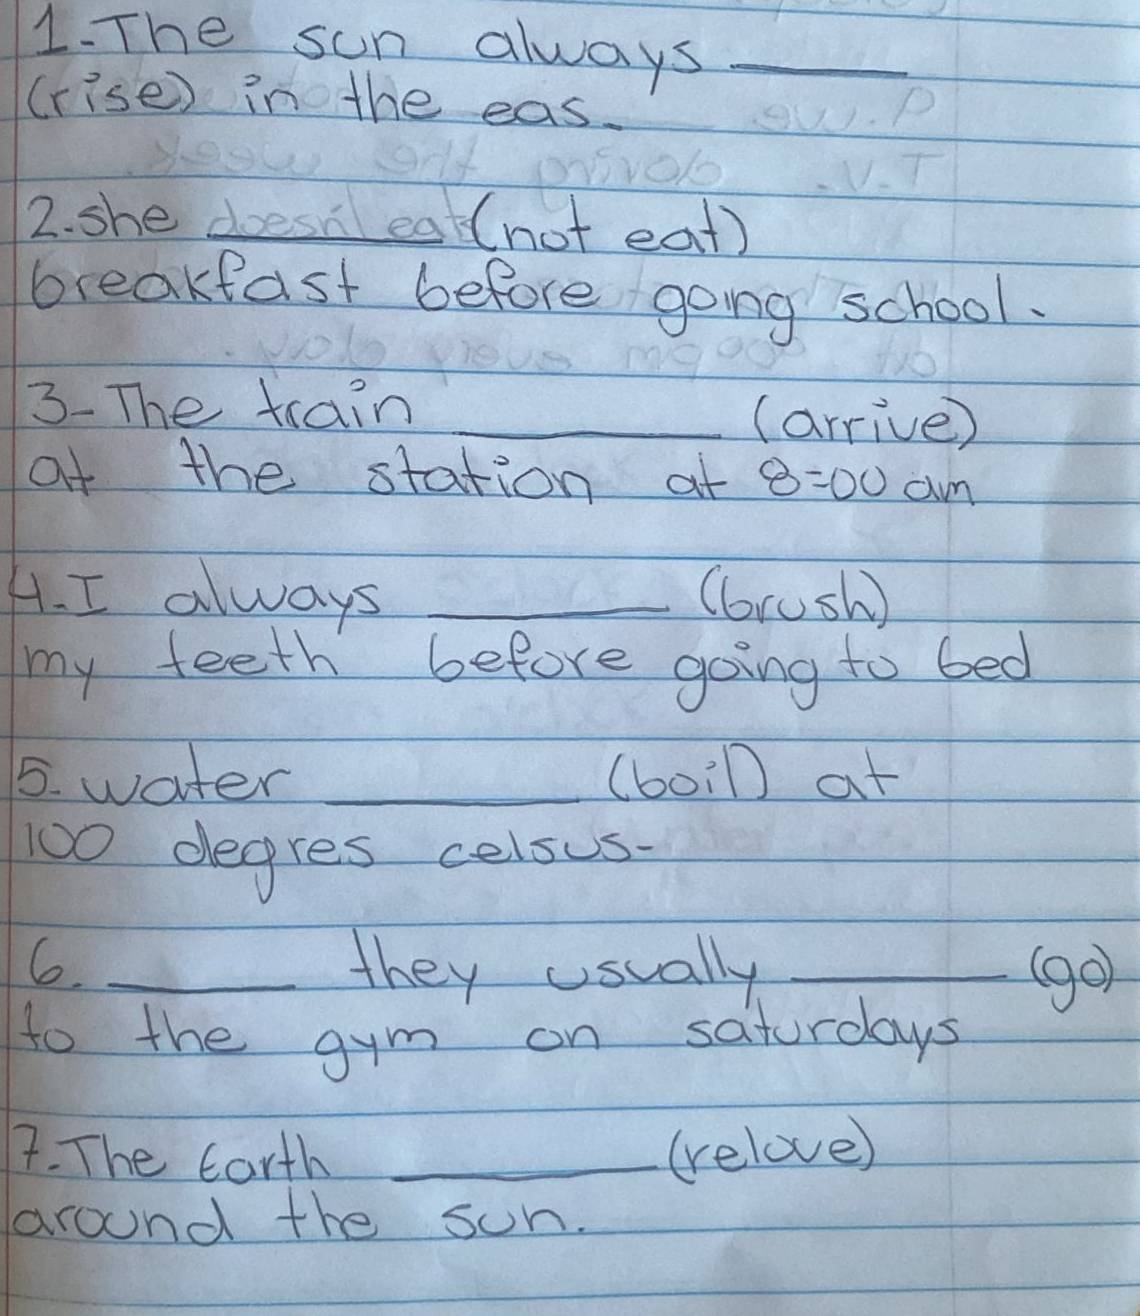 1-The sun always ______
(rise) in the eas.
2.she doesn't eat (not eat)
breakfast before going school.
3-The train ______ (arrive)
at the station at 8=00 am
4.I always ______ (brush)
my teeth before going to bed
5. water ______ (boil) at
100 degres celsus-
6. ______ they usually ______ (go)
to the gym on saturdays
7.The Earth ______ (relove)
around the sun.